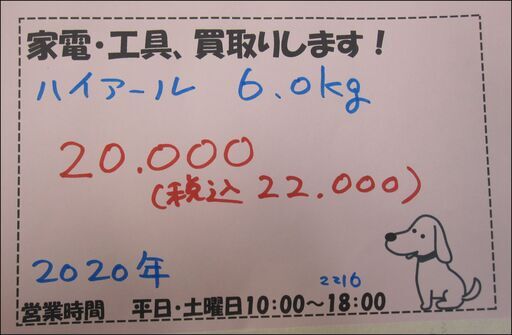 家電・工具、買取りします！
ハイアール 6.0kg
20.000
(税込 22.000)
2020年
2216
営業時間 平日・土曜日10:00～18:00